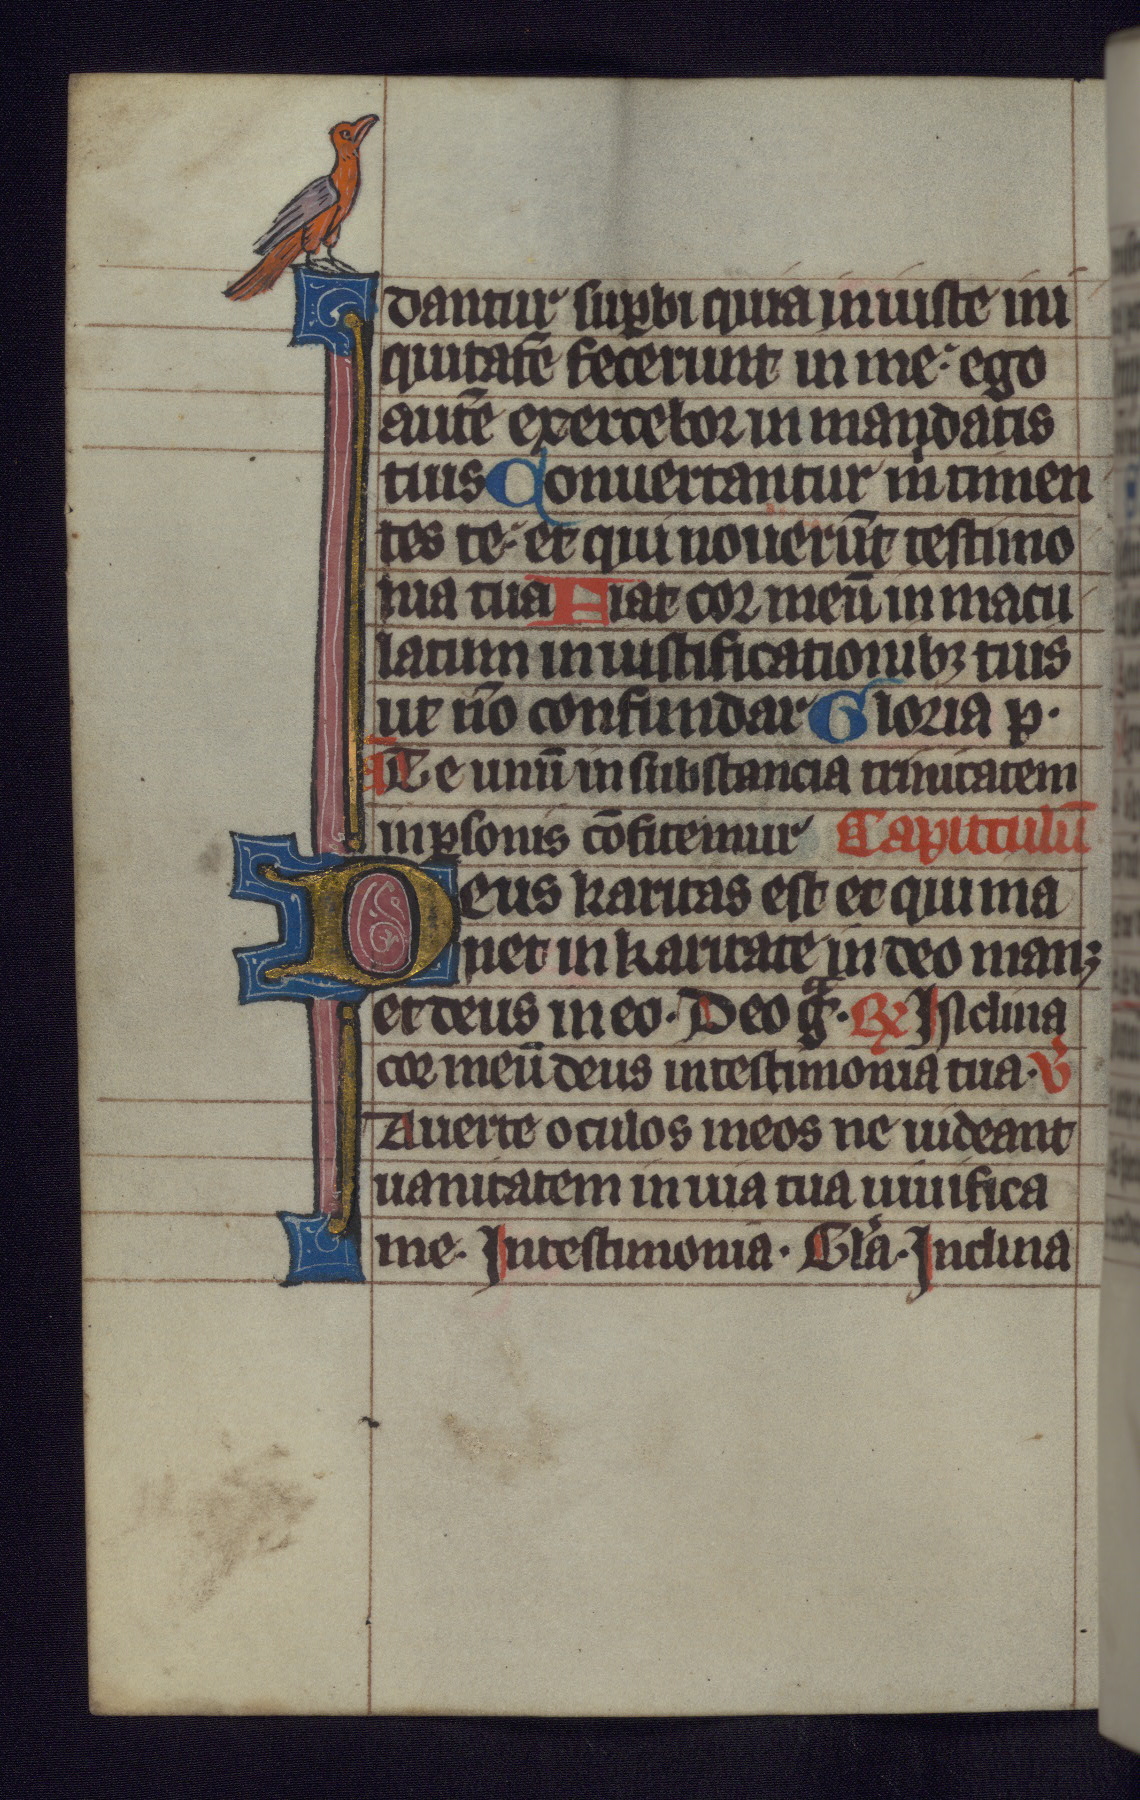 dantur sup̱bi quia iniuste ini
quitatē fecerunt in me: ego
autē exercebor in mandatis
tuis Conuertantur m̄ timen
tes te: et qui nouerūt testimo
nia tua Fiat cor meū inmacu
latum in iustificationibꝫ tuis
ut nō confundar Gloria p.
a͞ Te unū in substancia trinitatem
in ꝑsonis cōfitemur Capitulū
Deus karitas est et qui ma
net in karitate in deo manꝫ
et deus in eo. Deo gͣ. R̷ Inclina
cor meū deus in testimonia tua. V̄
Auerte oculos meos ne uideant
uanitatem in uia tua uiuifica
me. In testimonia. Glā. Inclina